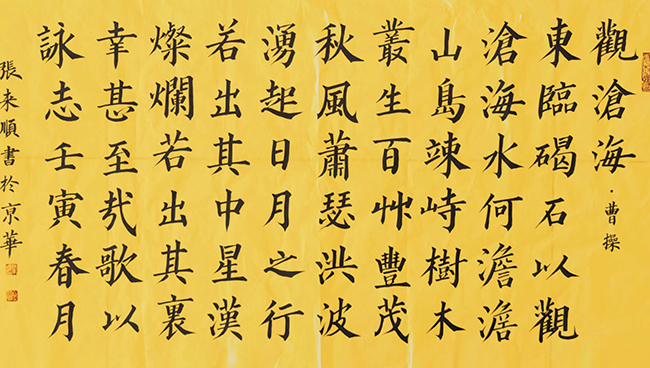 觀滄海·曹操
東臨碣石以觀
滄海水何澹澹
山島竦峙樹木
叢生百艸豐茂
秋風蕭瑟洪波
湧起日月之行
若出其中星漢
燦爛若出其裏
幸甚至哉歌以
詠志壬寅春月
張來順書於京華